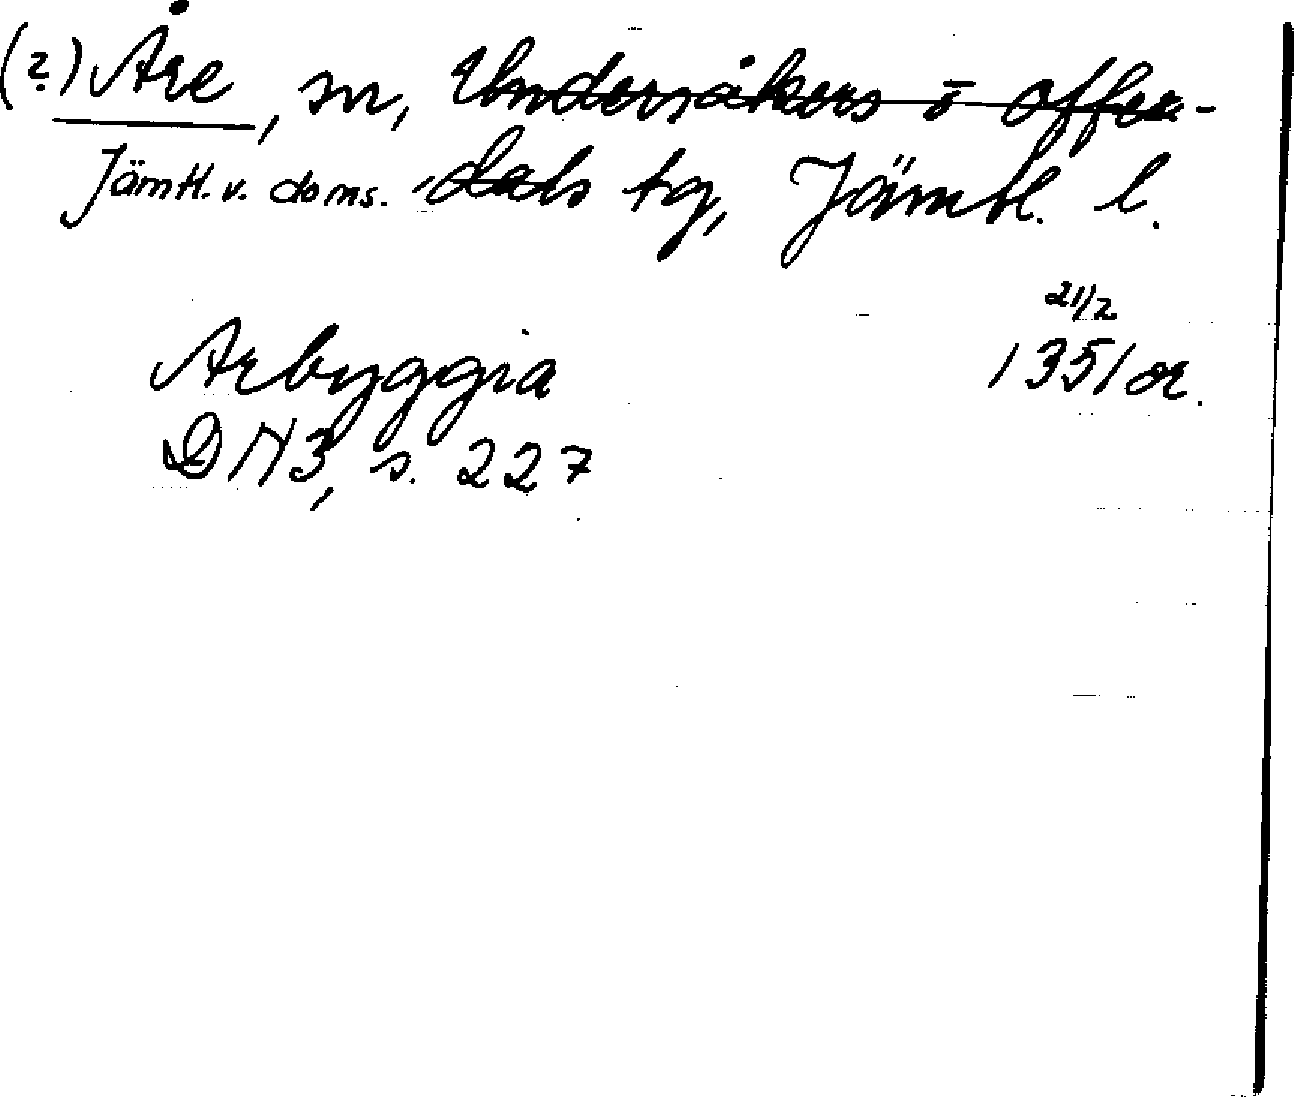 (?) Åre, sn, Undersåkers o Offer-
Jämtl. v. doms. dals tg, Jämtl. l.
21/2
Arbyggia 1351 or.
DN 3, s. 227